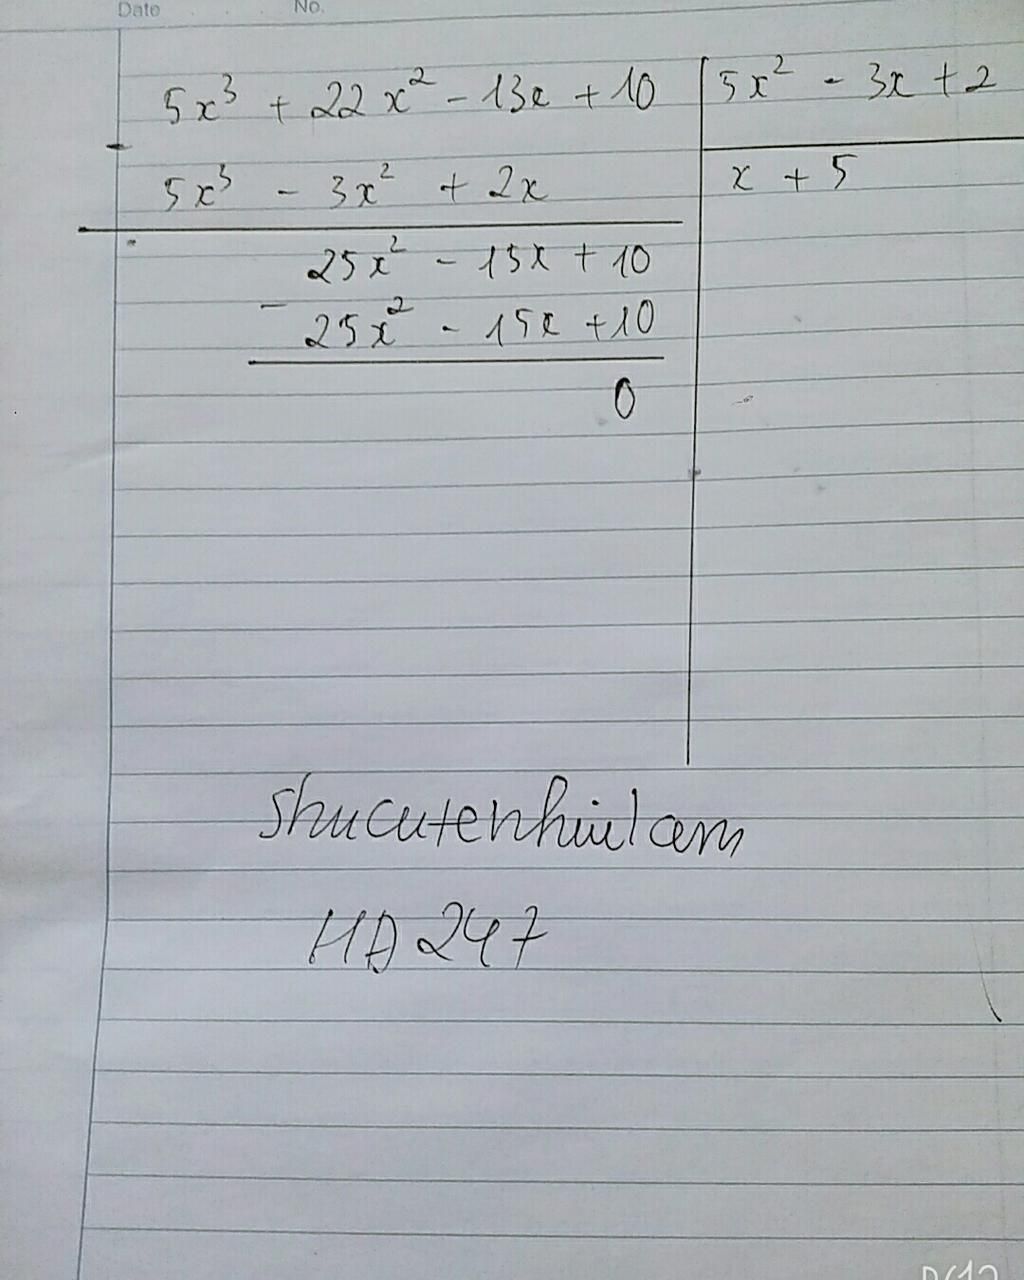 Date No.
5x³ + 22x² - 13x + 10 5x² - 3x + 2
-
5x³ - 3x² + 2x x + 5
25x² - 15x + 10
-
25x² - 15x + 10
0
Shucutenhiulam
HD 247